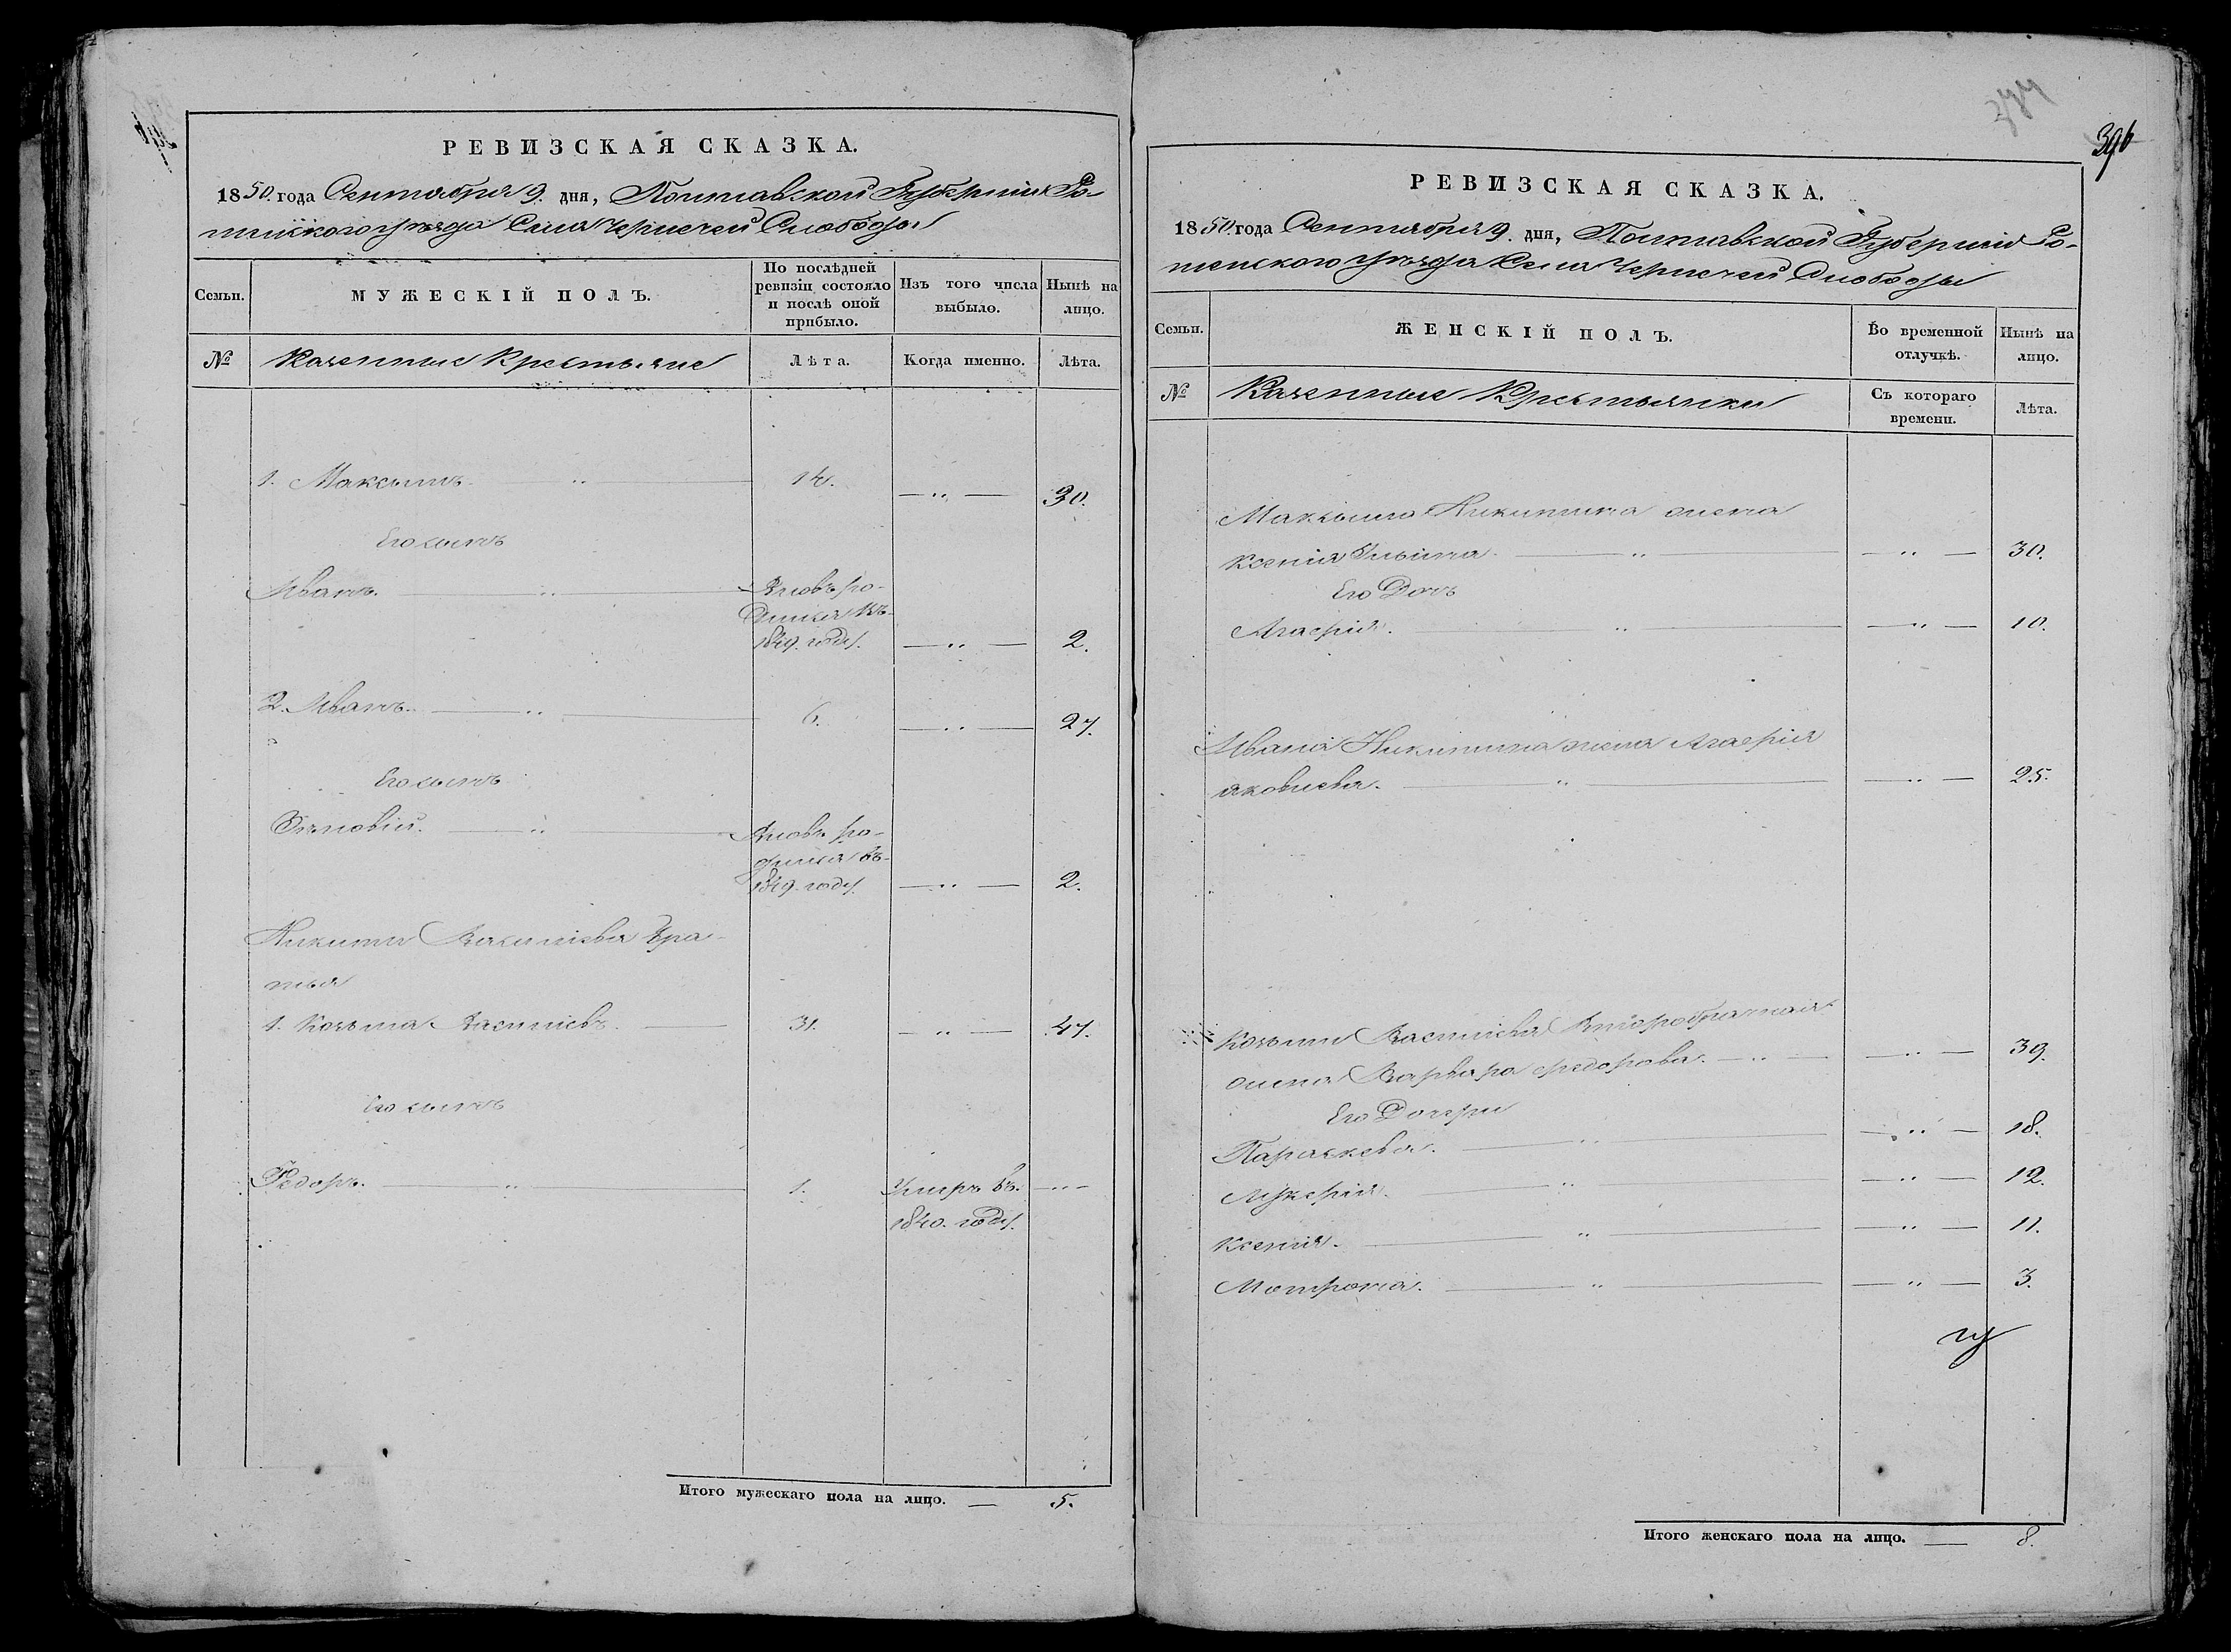 РЕВИЗСКАЯ СКАЗКА.
1850. года Сентября 9. дня, Полтавской Губерніи Ро-
менского уезда Села Чернечей Слободы
Семьи.
МУЖЕСКІЙ ПОЛЪ.
По послѣдней ревизіи состояло и послѣ оной прибыло.
Изъ того числа выбыло.
Нынѣ на лицо.
№
Казенные Крестьяне
Лѣта.
Когда именно.
Лѣта.
1. Максимъ 14. 30.
Его сынъ
Иванъ. Вновь ро-
дился въ
1849. году. 2.
2. Иванъ. 6. 27.
Его сынъ
Зѣновій. Вновь ро-
дился въ
1849. году. 2.
Никиты Васильева Бра-
тья
1. Козьма Васильевъ. 31. 47.
Его сынъ
Федоръ. 1. Умеръ въ
1840. году.
Итого мужескаго пола на лицо. 5.
277
396
РЕВИЗСКАЯ СКАЗКА.
1850. года Сентября 9. дня, Полтавской Губерніи Ро-
менского уезда Села Чернечей Слободы
Семьи.
ЖЕНСКІЙ ПОЛЪ.
Во временной отлучкѣ.
Нынѣ на лицо.
№
Казенные Крестьянки
Съ котораго времени.
Лѣта.
Максима Никитина жена
Ксенія Ильина. 30.
Его Дочь
Агафія. 10.
Ивана Никитина жена Агафія
яковлева. 25.
Козьмы Васильева Второбрачная
жена Варвара федорова. 39.
Его Дочери
Параскева. 18.
Лукерія. 12.
Ксенія. 11.
Мотрона. 3.
Итого женскаго пола на лицо. 8.